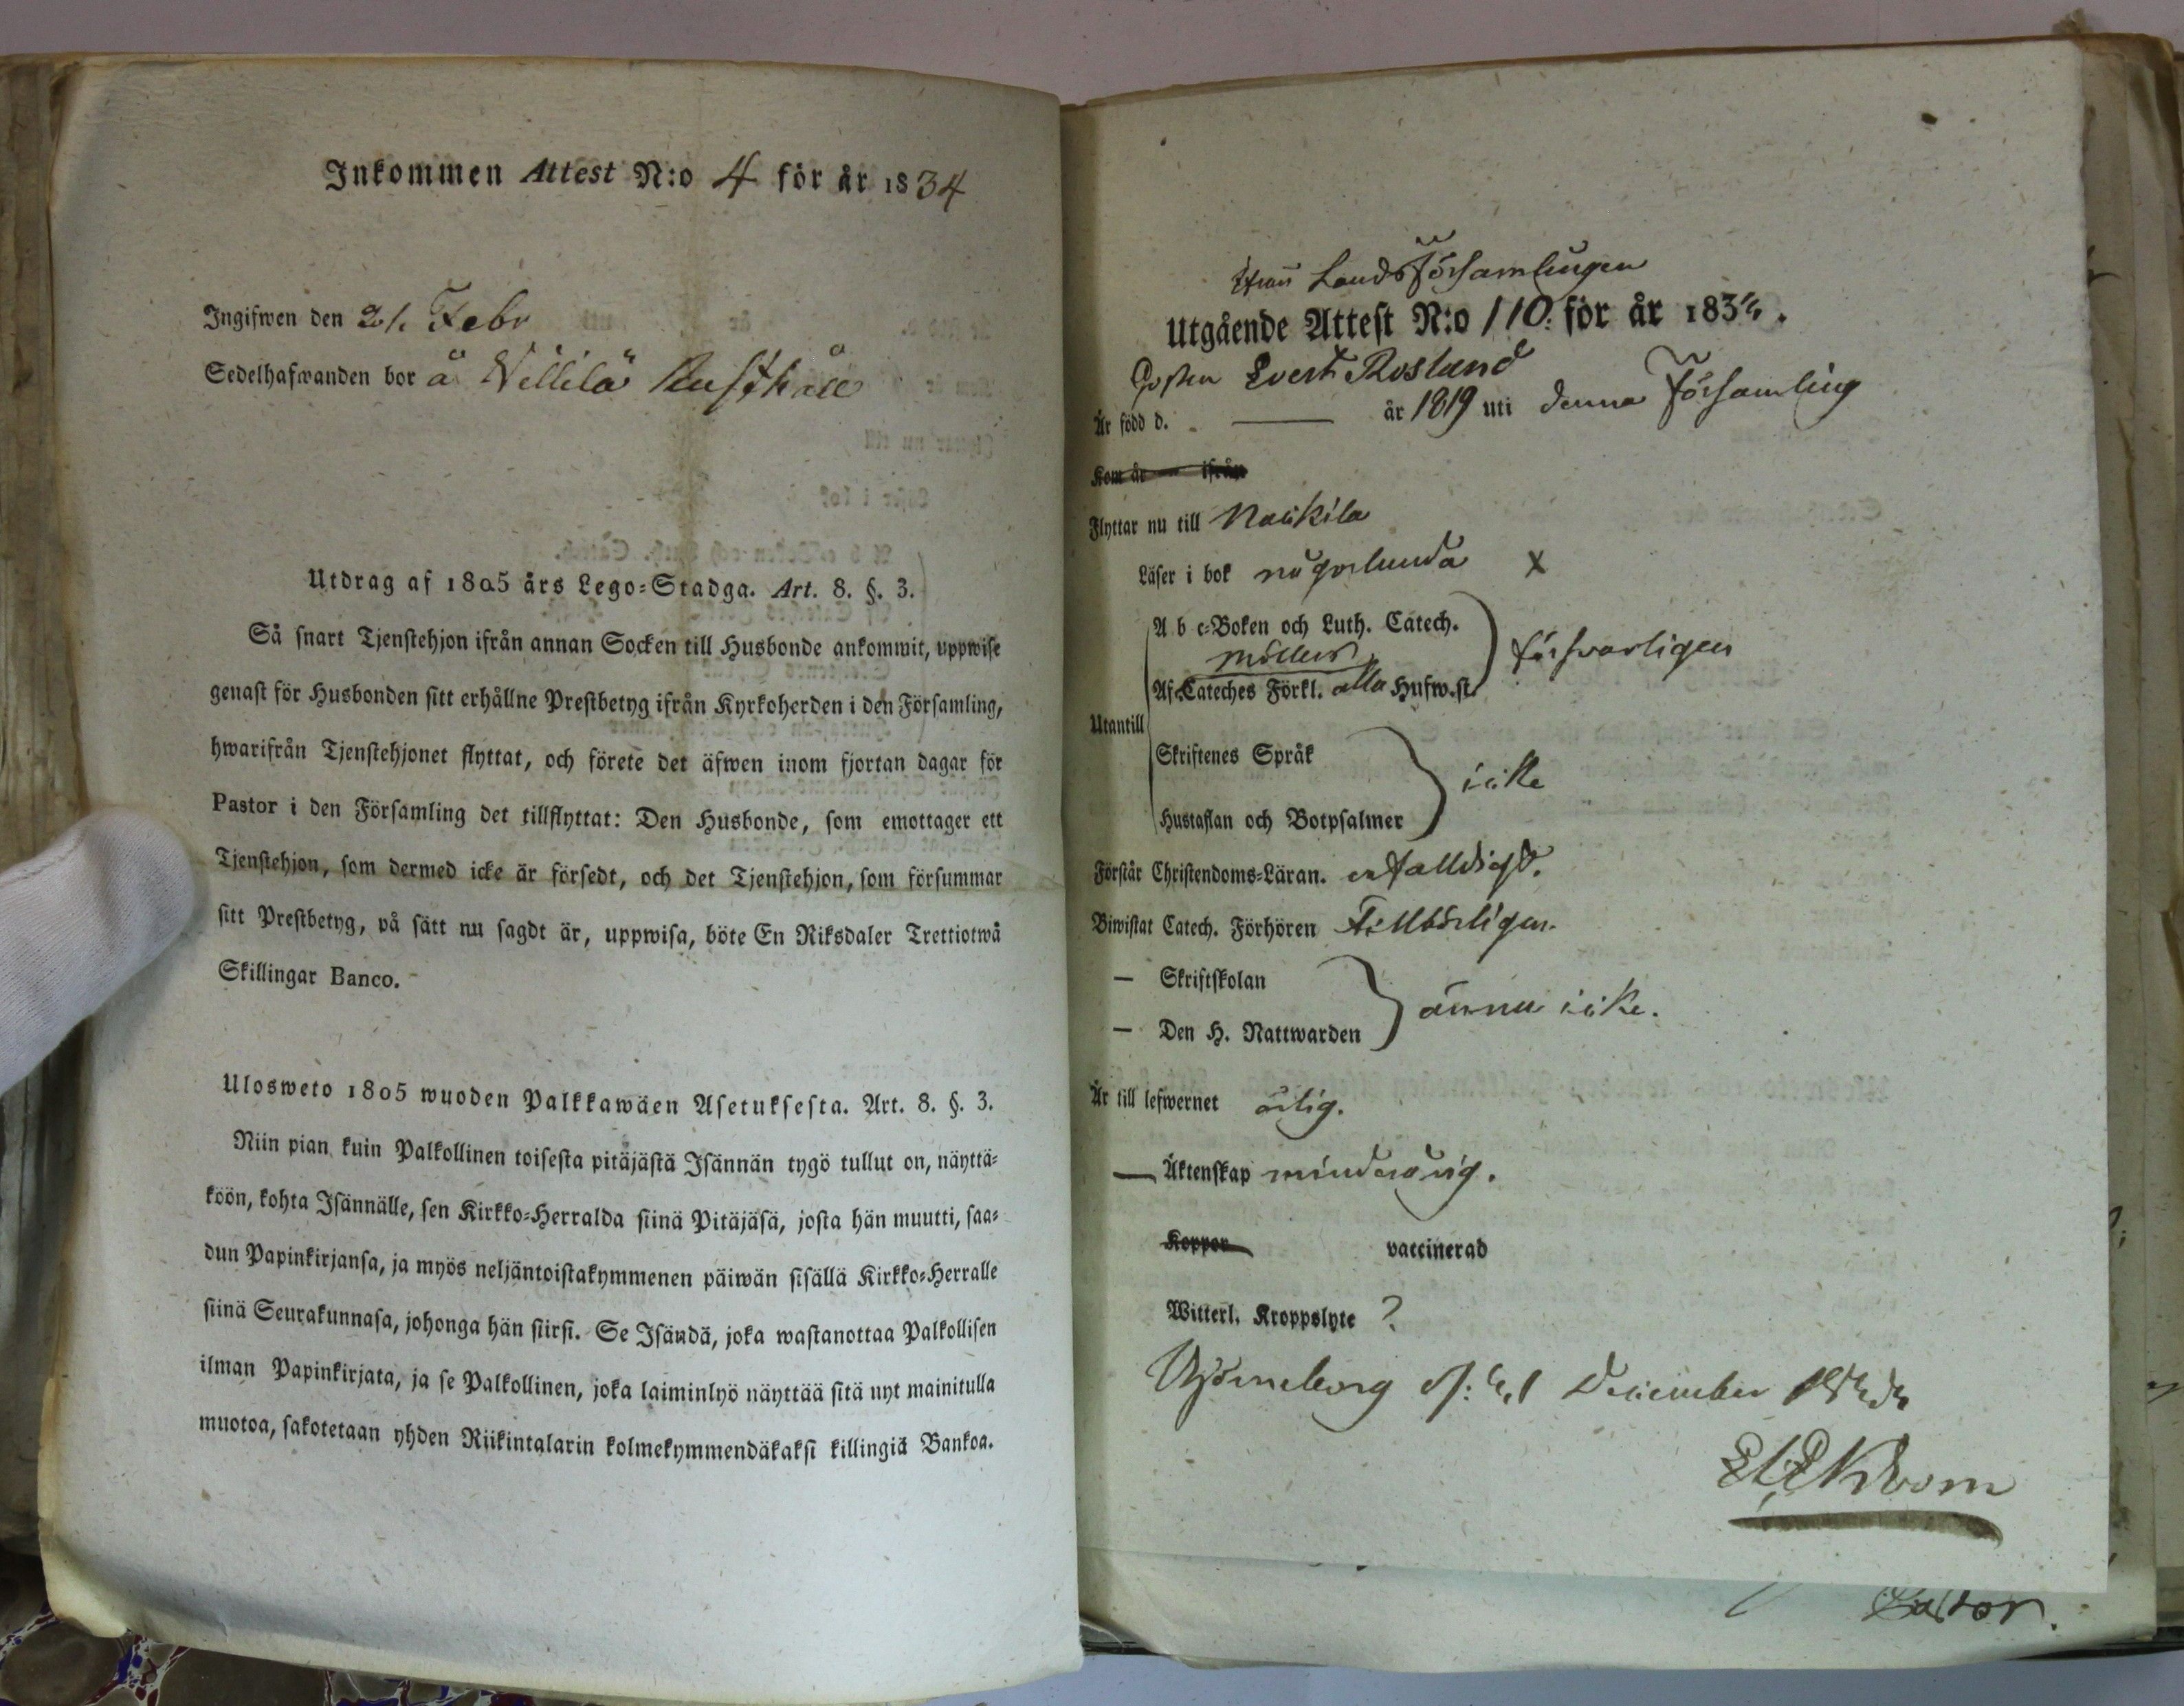 Inkommen Attest N:o 4 för år 1834
Ingifwen den 2/1 Febr
Sedelhafwanden bor å Villilä Rusthåll
Utdrag af 1805 års Lego-Stadga. Art. 8. §. 3.
Så snart Tjenstehjon ifrån annan Socken till Husbonde ankommit, uppwise
genast för Husbonden sitt erhållne Prestbetyg ifrån Kyrkoherden i den Församling,
hwarifrån Tjenstehjonet flyttat, och förete det äfwen inom fjortan dagar för
Pastor i den Församling det tillflyttat: Den Husbonde, som emottager ett
Tjenstehjon, som dermed icke är försedt, och det Tjenstehjon, som försummar
sitt Prestbetyg, på sätt nu sagdt är, uppwisa, böte En Riksdaler Trettiotwå
Skillingar Banco.
Ulosweto 1805 wuoden Palkkawäen Asetuksesta. Art. 8. §. 3.
Niin pian kuin Palkollinen toisesta pitäjästä Isännän tygö tullut on, näyttä-
köön, kohta Isännälle, sen Kirkko-Herralda siinä Pitäjäsä, josta hän muutti, saa-
dun Papinkirjansa, ja myös neljäntoistakymmenen päiwän sisällä Kirkko-Herralle
siinä Seurakunnasa, johonga hän siirsi. Se Isändä, joka wastanottaa Palkollisen
ilman Papinkirjata, ja se Palkollinen, joka laiminlyö näyttää sitä nyt mainitulla
muotoa, sakotetaan yhden Riikintalarin kolmekymmendäkaksi killingiä Bankoa.
ifrån Landsförsamlingen
Utgående Attest N:o 110. för år 183
Gossen Evert Rosland
År född d. — år 1819 uti denna Församling
Kom år ifrån
Flyttar nu till Nackila
Läser i bok någorlunda X
A b c-Boken och Luth. Catech.
Möllers
Af Cateches Förkl. alla Hufw.st.
försvarligen
Utantill
Skriftenes Språk
Hustaflan och Botpsalmer
icke
Förstår Christendoms-Läran. enfalldigt.
Biwistat Catech. Förhören Tillbörligen.
— Skriftskolan
— Den H. Nattwarden
ännu icke.
Är till lefwernet ärlig.
— Äktenskap minderårig.
Koppor vaccinerad
Witterl. Kroppslyte ?
Björneborg d: December
Pastor.